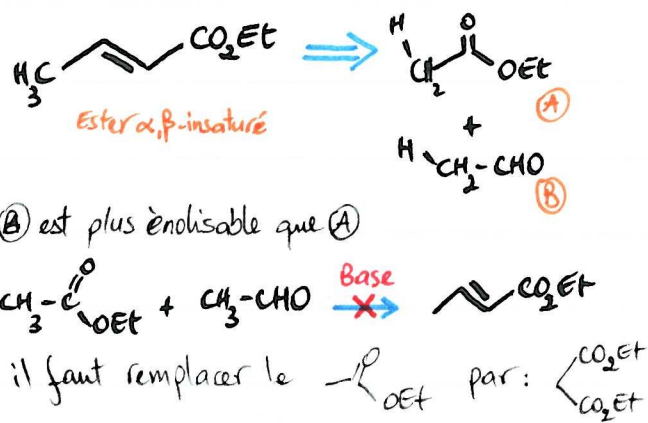 H₃C CO₂Et ⇒ H CH₂ O OEt
Ester α,β-insaturé
(A)
+
H CH₂-CHO
(B)
(B) est plus ènolisable que (A)
CH₃-C O OEt + CH₃-CHO Base CO₂Et
il faut remplacer le O OEt par: CO₂Et CO₂Et